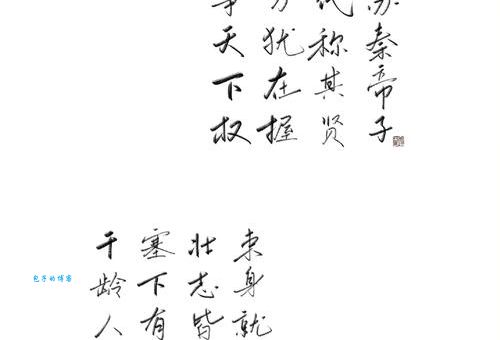 苏秦帝子
代称其贤
犹在握
天下权
束身就
壮志皆
塞下有
千龄人
包子的博客